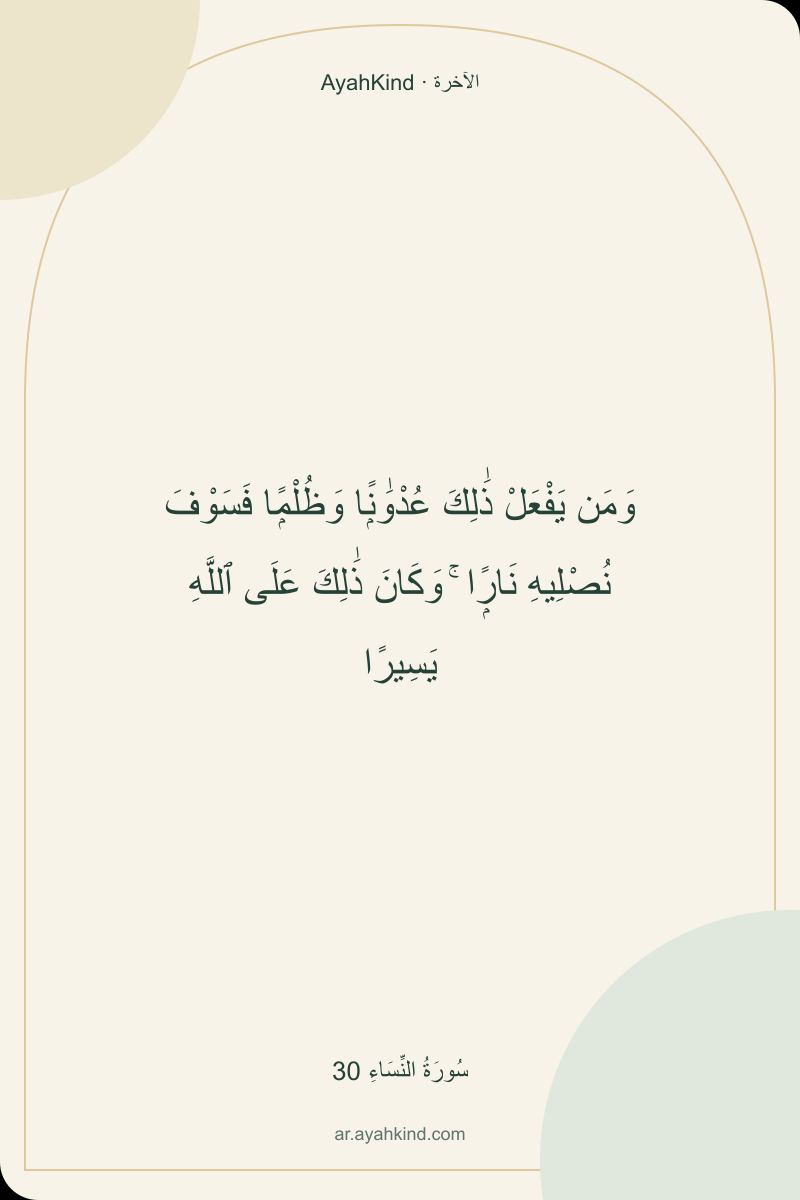 AyahKind · الآخرة
وَمَن يَفْعَلْ ذَٰلِكَ عُدْوَٰنًۭا وَظُلْمًۭا فَسَوْفَ
نُصْلِيهِ نَارًۭا ۚ وَكَانَ ذَٰلِكَ عَلَى ٱللَّهِ
يَسِيرًا
سُورَةُ النِّسَاءِ 30
ar.ayahkind.com